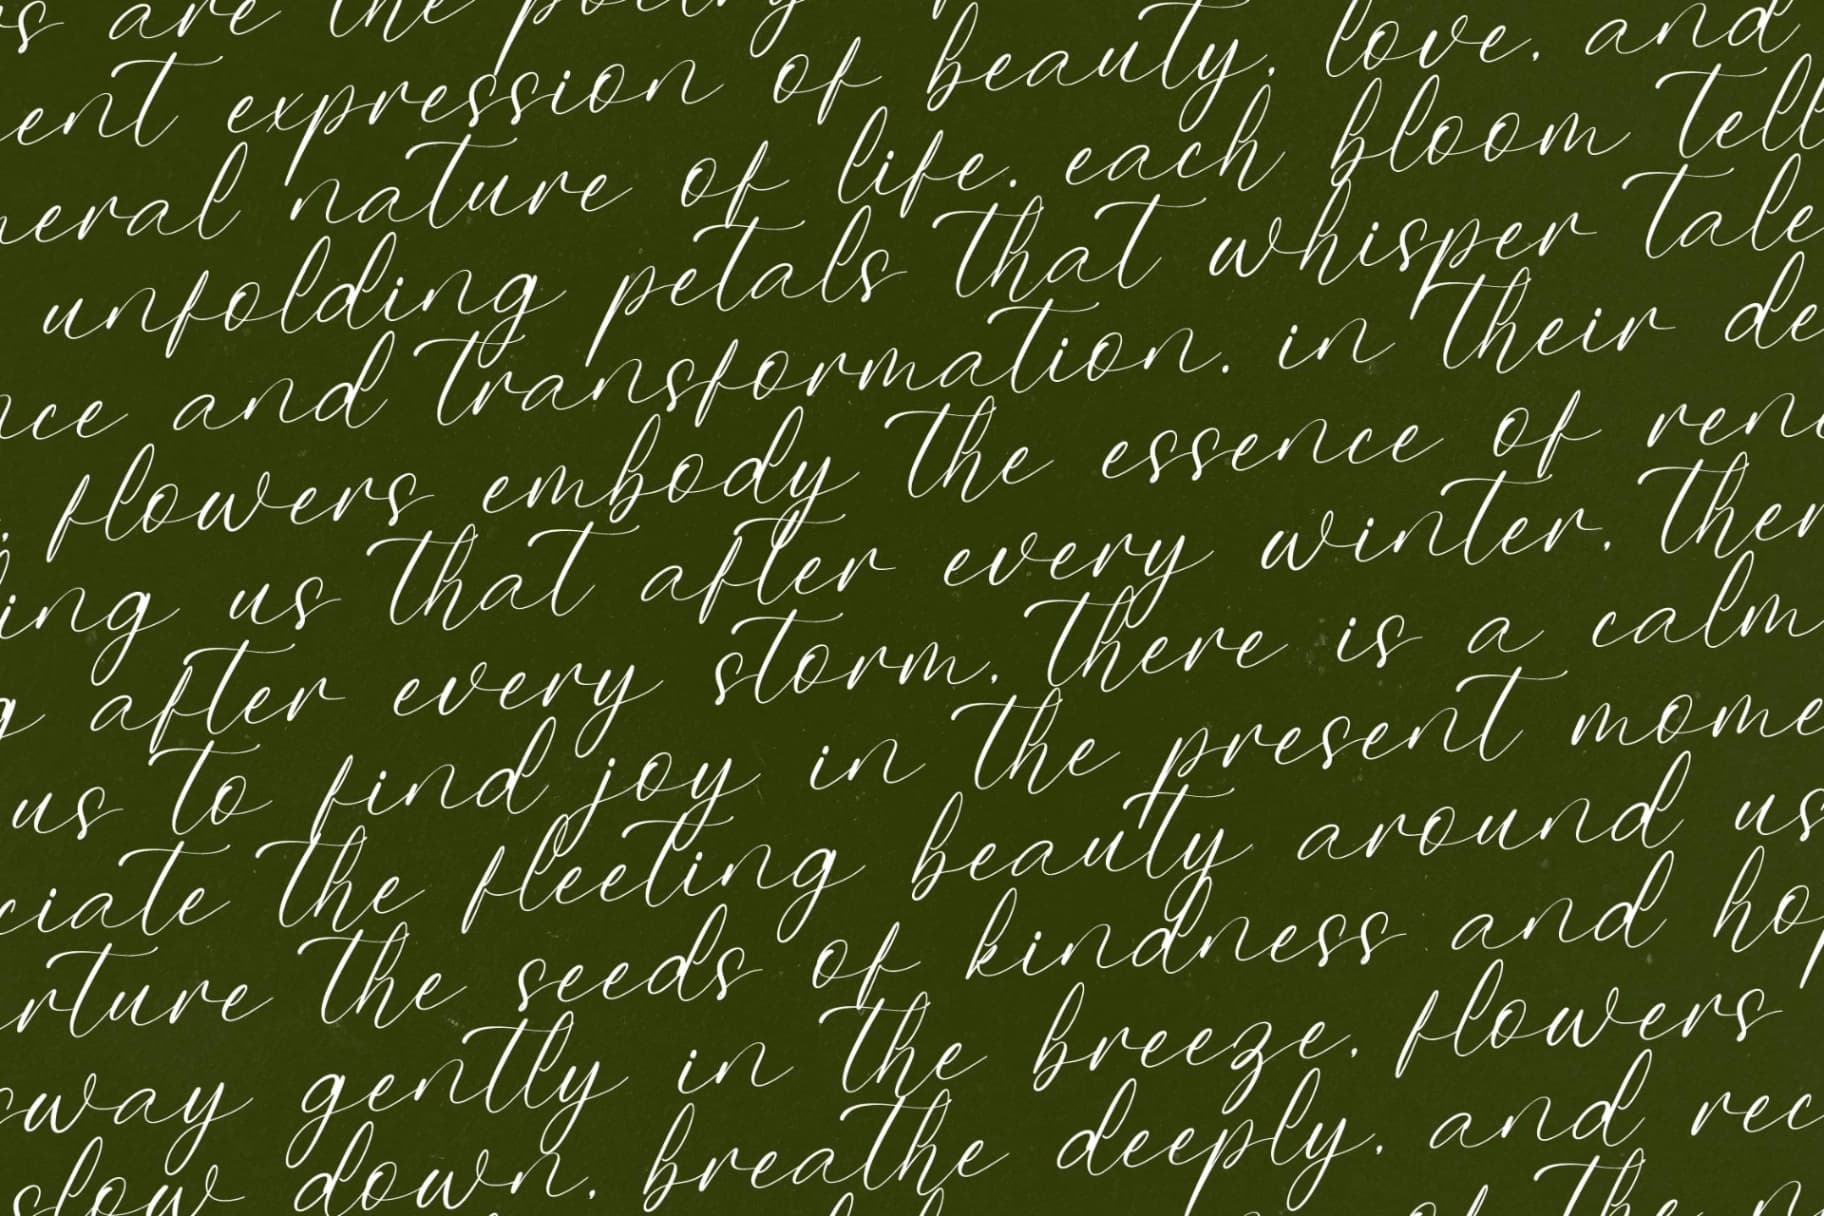 are the poetry
ent expression of beauty, love, and
neral nature of life. each bloom tell
unfolding petals that whisper tale
nce and transformation. in their de
flowers embody the essence of ren
ing us that after every winter, ther
g after every storm, there is a calm
us to find joy in the present mome
ciate the fleeting beauty around us
rture the seeds of kindness and hop
sway gently in the breeze, flowers
slow down, breathe deeply, and rec
of the